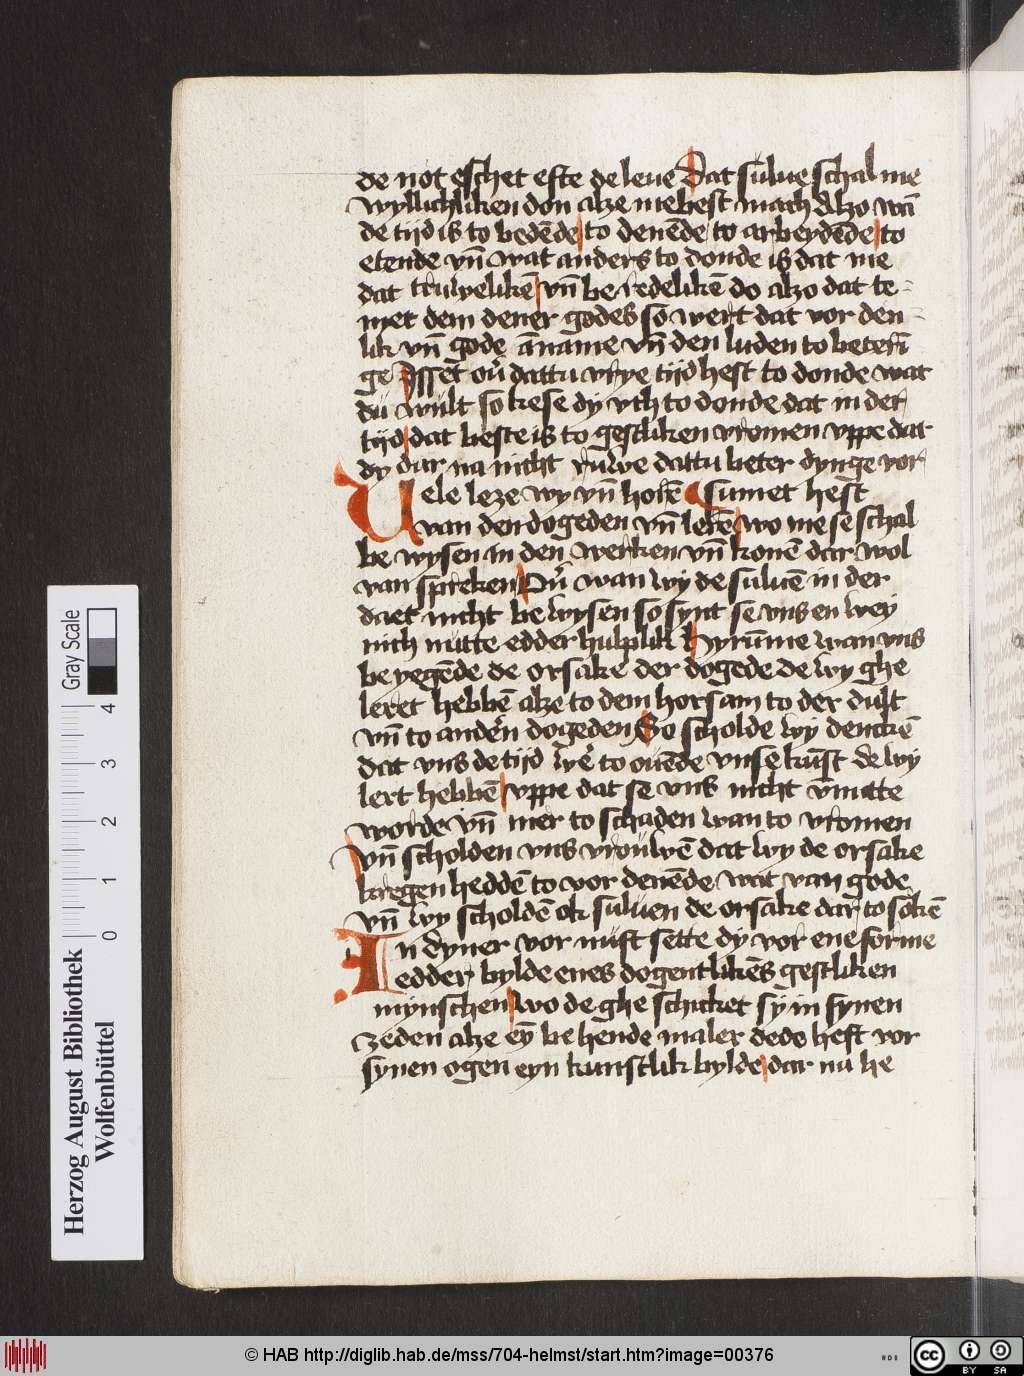 de not eschet efte de leue Dat sulue schal me
wyllichliken don alze me best mach Alzo wā
de tijd is to bedēde to denēde to arbeydēde to
etende vn̄ wat anders to donde is dat me
dat truwelikē vn̄ be redelikē do alzo dat te-
met dem dener godes so wert dat vor den-
lik vn̄ gode āname vn̄ den luden to beterī
ge Isset ou̓ dattu vrye tijd hest to donde wat
du wult so kese dy vth to donde dat in der
tijd dat beste is to gestliken vromen vppe dat
dy dar na nicht ruwe dattu beter dynge vor
Uele leze wy vn̄ horē sumet hest
van den dogeden vn̄ lerē wo me se schal
be wysen in den werken vn̄ konē dar wol
van spreken Ou̓ wan wy de suluē in der
daet nicht be wysen so synt se vns en wey
nich nutte edder hulplik Hyrūme wan vns
be yegēde de orsake der dogede de wy ghe
leret hebbē alze to dem horsam to der dult
vn̄ to andern̄ dogeden So scholde wy denckē
dat vns de tijd we̓ to ouēde vnse kūst de wy
lert hebbē vppe dat se vns nicht v̄nutte
worde vn̄ mer to schaden wan to vromen
vn̄ scholden vns vrouwē dat wy de orsake
kregen heddē to vor denēde wat van gode
vn̄ wy scholdē ok suluen de orsake dar to sokē
In dyner vor nuft sette dy vor ene forme
edder bylde enes dogentlikēs gestliken
mynschen wo de ghe schicket sy in synen
zeden alze ey̅ be hende maler dede heft vor
synen ogen eyn kunstlik bylde dar na he
Herzog August Bibliothek
Wolfenbüttel
Gray Scale
0 1 2 3 4
© HAB http://diglib.hab.de/mss/704-helmst/start.htm?image=00376
HAB
cc BY SA